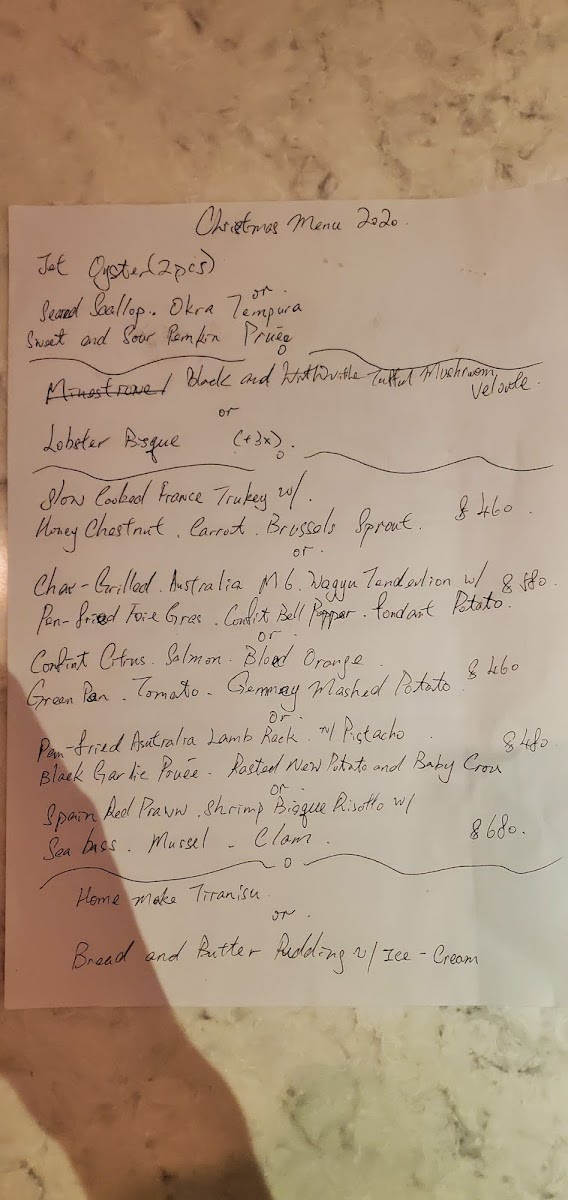 Christmas Menu 2020.
Jet Oyster (2pcs)
or.
Seared Scallop. Okra Tempura
Sweet and Sour Pemkin Pruée
Minestrone / Black and White Mushroom
Veloute.
or
Lobster Bisque (+3x).
Slow Cooked France Trukey w/.
Honey Chestnut. Carrot. Brussels Sprout. $460.
or.
Char-Grilled. Australia M6. Wagyu Tenderlion w/ $580.
Pan-fried Foie Gras. Confit Bell Pepper. fondant Potato.
or
Confint Citrus. Salmon. Blood Orange.
Green Pan. Tomato. Mashed Potato. $460
or.
Pan-fried Asutralia Lamb Rack. w/ Pistacho. $480.
Black Garlic Pruée. Rasted New Potato and Baby
or.
Spain Red Prawn. Shrimp Bisque Risotto w/
Sea bass. Mussel. Clam. $680.
Home make Tiranisu.
or.
Bread and Butter Pudding w/ Ice-Cream